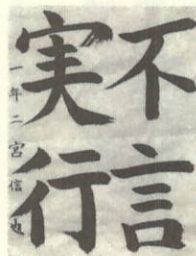 不言
実行
一年二宮信也